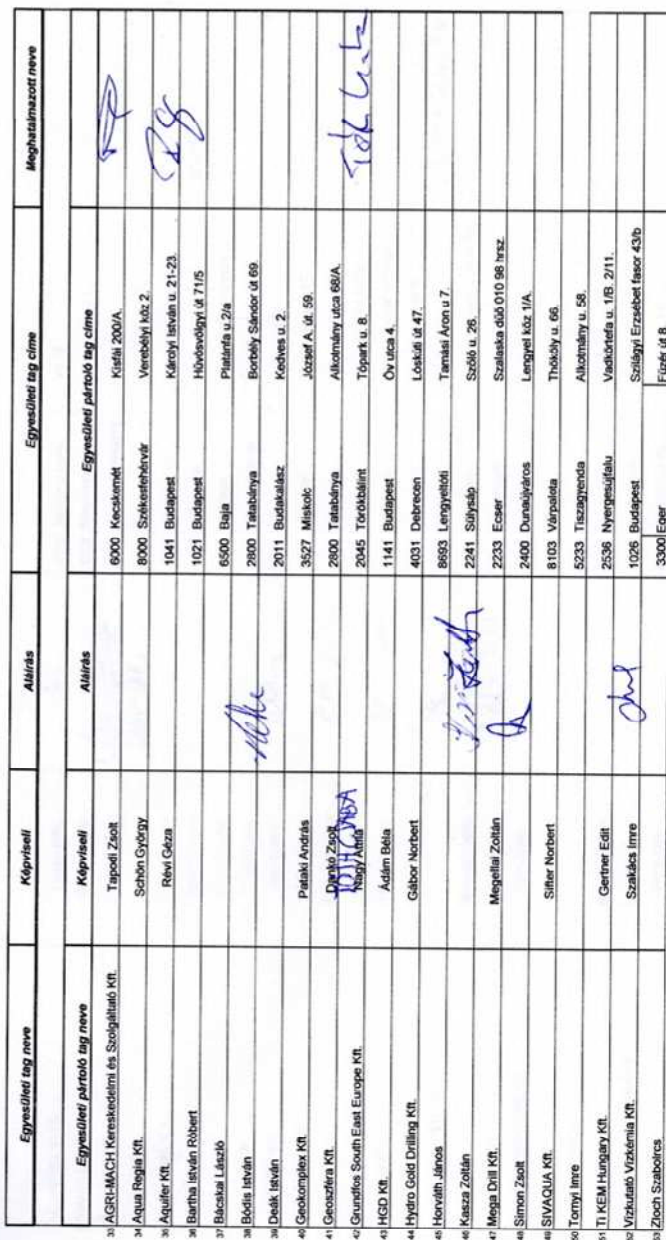 Egyesületi tag neve Képviseli Aláírás Egyesületi tag címe Meghatalmazott neve
Egyesületi pártoló tag neve Képviseli Aláírás Egyesületi pártoló tag címe
33 AGRI-MACH Kereskedelmi és Szolgáltató Kft. Tapodi Zsolt 6000 Kecskemét Kisfái 200/A.
34 Aqua Regia Kft. Schön György 8000 Székesfehérvár Verebélyi köz 2.
35 Aquifer Kft. Révi Géza 1041 Budapest Károlyi István u. 21-23.
36 Bartha István Róbert 1021 Budapest Hűvösvölgyi út 71/5
37 Bácskai László 6500 Baja Platánfa u. 2/a
38 Bódis István 2800 Tatabánya Borbély Sándor út 69.
39 Deák István 2011 Budakalász Kedves u. 2.
40 Geokomplex Kft. Pataki András 3527 Miskolc József A. út. 59.
41 Geoszféra Kft. Dankó Zsolt 2800 Tatabánya Alkotmány utca 68/A.
42 Grundfos South East Europe Kft. Nagy Attila 2045 Törökbálint Tópark u. 8.
43 HGD Kft. Ádám Béla 1141 Budapest Öv utca 4.
44 Hydro Gold Drilling Kft. Gábor Norbert 4031 Debrecen Lóskúti út 47.
45 Horváth János 8693 Lengyeltóti Tamási Áron u 7.
46 Kasza Zoltán 2241 Sülysáp Szőlő u. 26.
47 Mega Drill Kft. Megellai Zoltán 2233 Ecser Szalaska dűlő 010 98 hrsz.
48 Simon Zsolt 2400 Dunaújváros Lengyel köz 1/A.
49 SIVAQUA Kft. Sifter Norbert 8103 Várpalota Thököly u. 66.
50 Tornyi Imre 5233 Tiszagyenda Alkotmány u. 58.
51 TI KEM Hungary Kft. Gertner Edit 2536 Nyergesújfalu Vadkörtefa u. 1/B. 2/11.
52 Vízkutató Vízkémia Kft. Szakács Imre 1026 Budapest Szilágyi Erzsébet fasor 43/b
53 Zloch Szabolcs 3300 Eger Fűzér út 8.